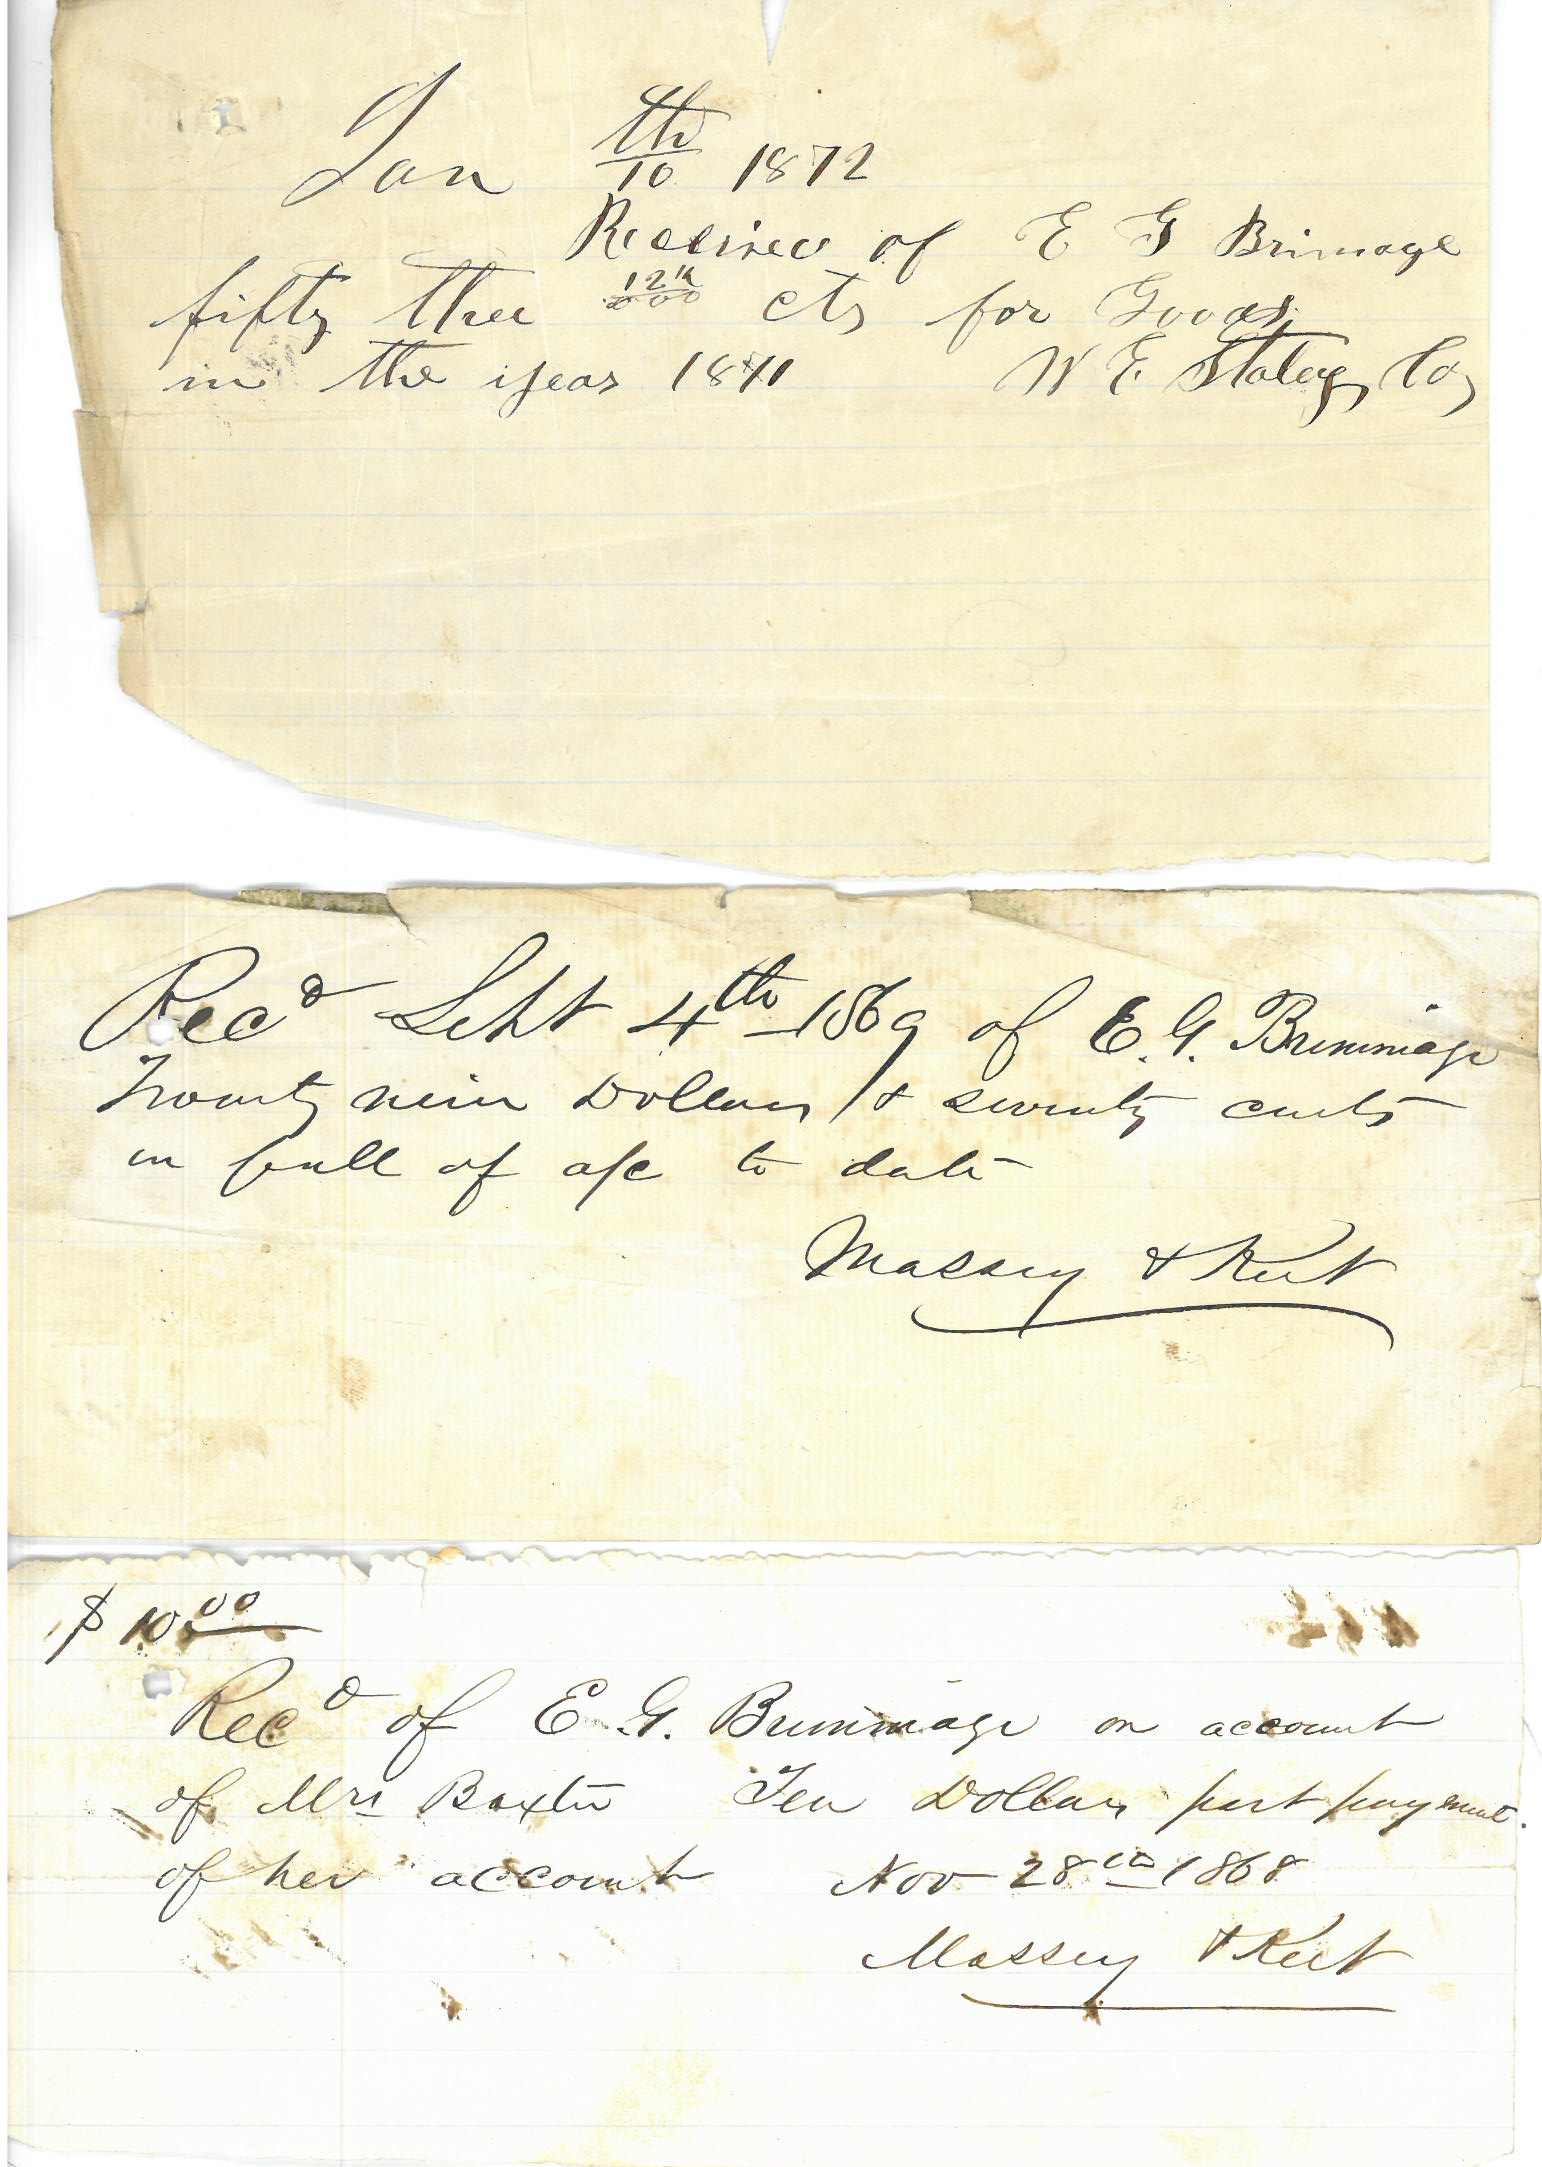 Jan 10th 1872
Received of E G Brimage
fifty three cts for Goods
in the year 1871 W E Staley, Co,
Recd Sept 4th 1869 of E. G. Brummage
Twenty nine Dollars & seventy cents
in full of a/c to date
Massey & Keet
$ 10 00
Recd of E. G. Brummage on account
of Mrs Baxter Ten Dollars part payment.
of her account Nov 28th 1868
Massey & Keet